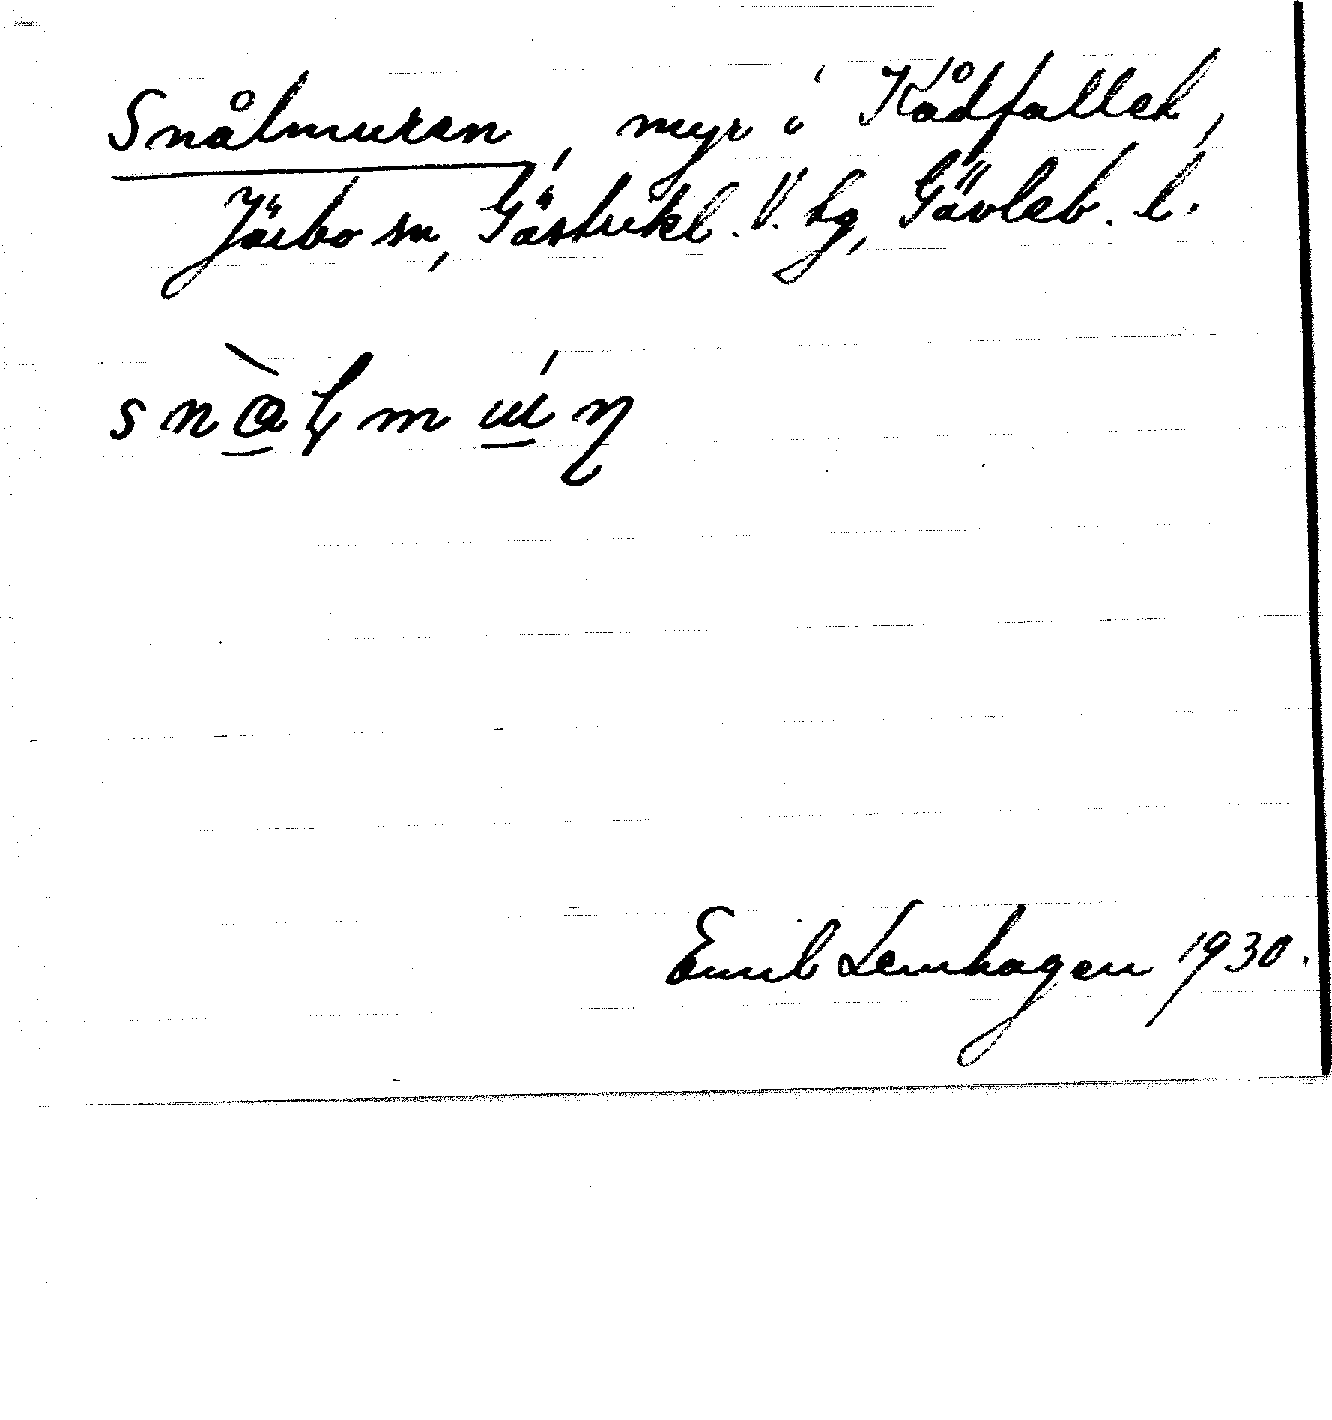 Snålmuren, myr i Kådfallet,
Järbo sn, Gästrikl. V. hg, Gävleb. l.
Emil Lemhagen 1930.